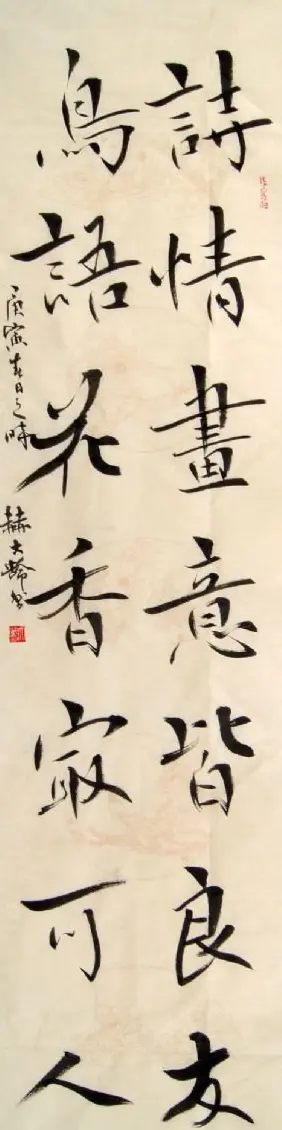 詩情畫意皆良友
鳥語花香寂可人
庚寅春日之時 赫大齡書